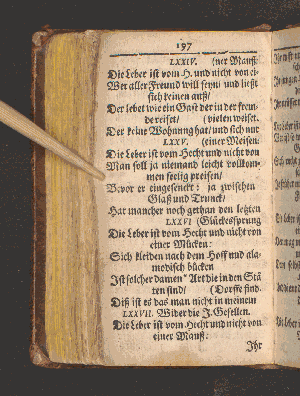 197
LXXIV. (ner Mauß:
Die Leber ist vom H. und nicht von ei-
Wer aller Freund will seyn/ und ließt
sich keinen auß/
Der lebet wie ein Gast der in der frem-
de reiset/ (vielen weiset.
Der keine Wohnung hat/ und sich nur
LXXV. (einer Meisen:
Die Leber ist vom Hecht und nicht von
Man soll ja niemand leicht vollkom-
men seelig preisen/
Bevor er eingesenckt: ja zwischen
Glaß und Trunck/
Hat mancher noch gethan den letzten
LXXVI (Glückessprung
Die Leber ist vom Hecht und nicht von
einer Mücken:
Sich kleiden nach dem Hoff und ala-
modisch bücken
Ist solcher damen Art die in den Stä-
ten sind/ (Dorffe find.
Diß ist es das man nicht in meinem
LXXVII. Wider die J. Gesellen.
Die Leber ist vom Hecht und nicht von
einer Mauß:
Ihr